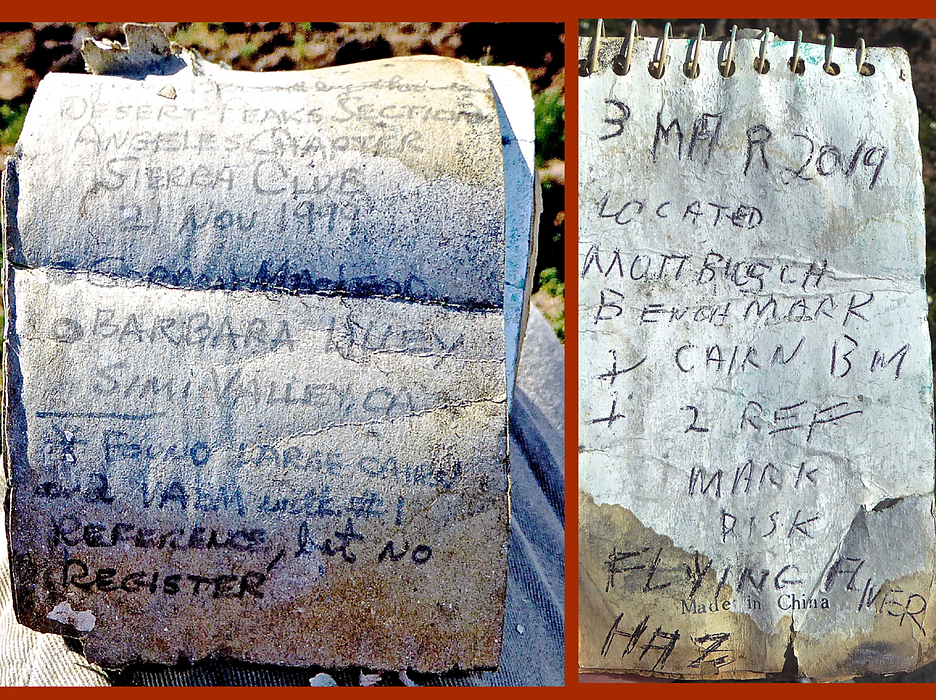 DESERT PEAKS SECTION
ANGELES CHAPTER
SIERRA CLUB
21 NOV 1979
GORDON MACLEOD
BARBARA LILLEY
SIMI VALLEY, CA
FOUND LARGE CAIRN
and VABM with #1
REFERENCE, but NO
REGISTER
3 MAR 2019
LOCATED
MOTT BUSCH
BENCHMARK
+ CAIRN BM
+ 2 REF
MARK
DISK
FLYING
Made in China
HAZ